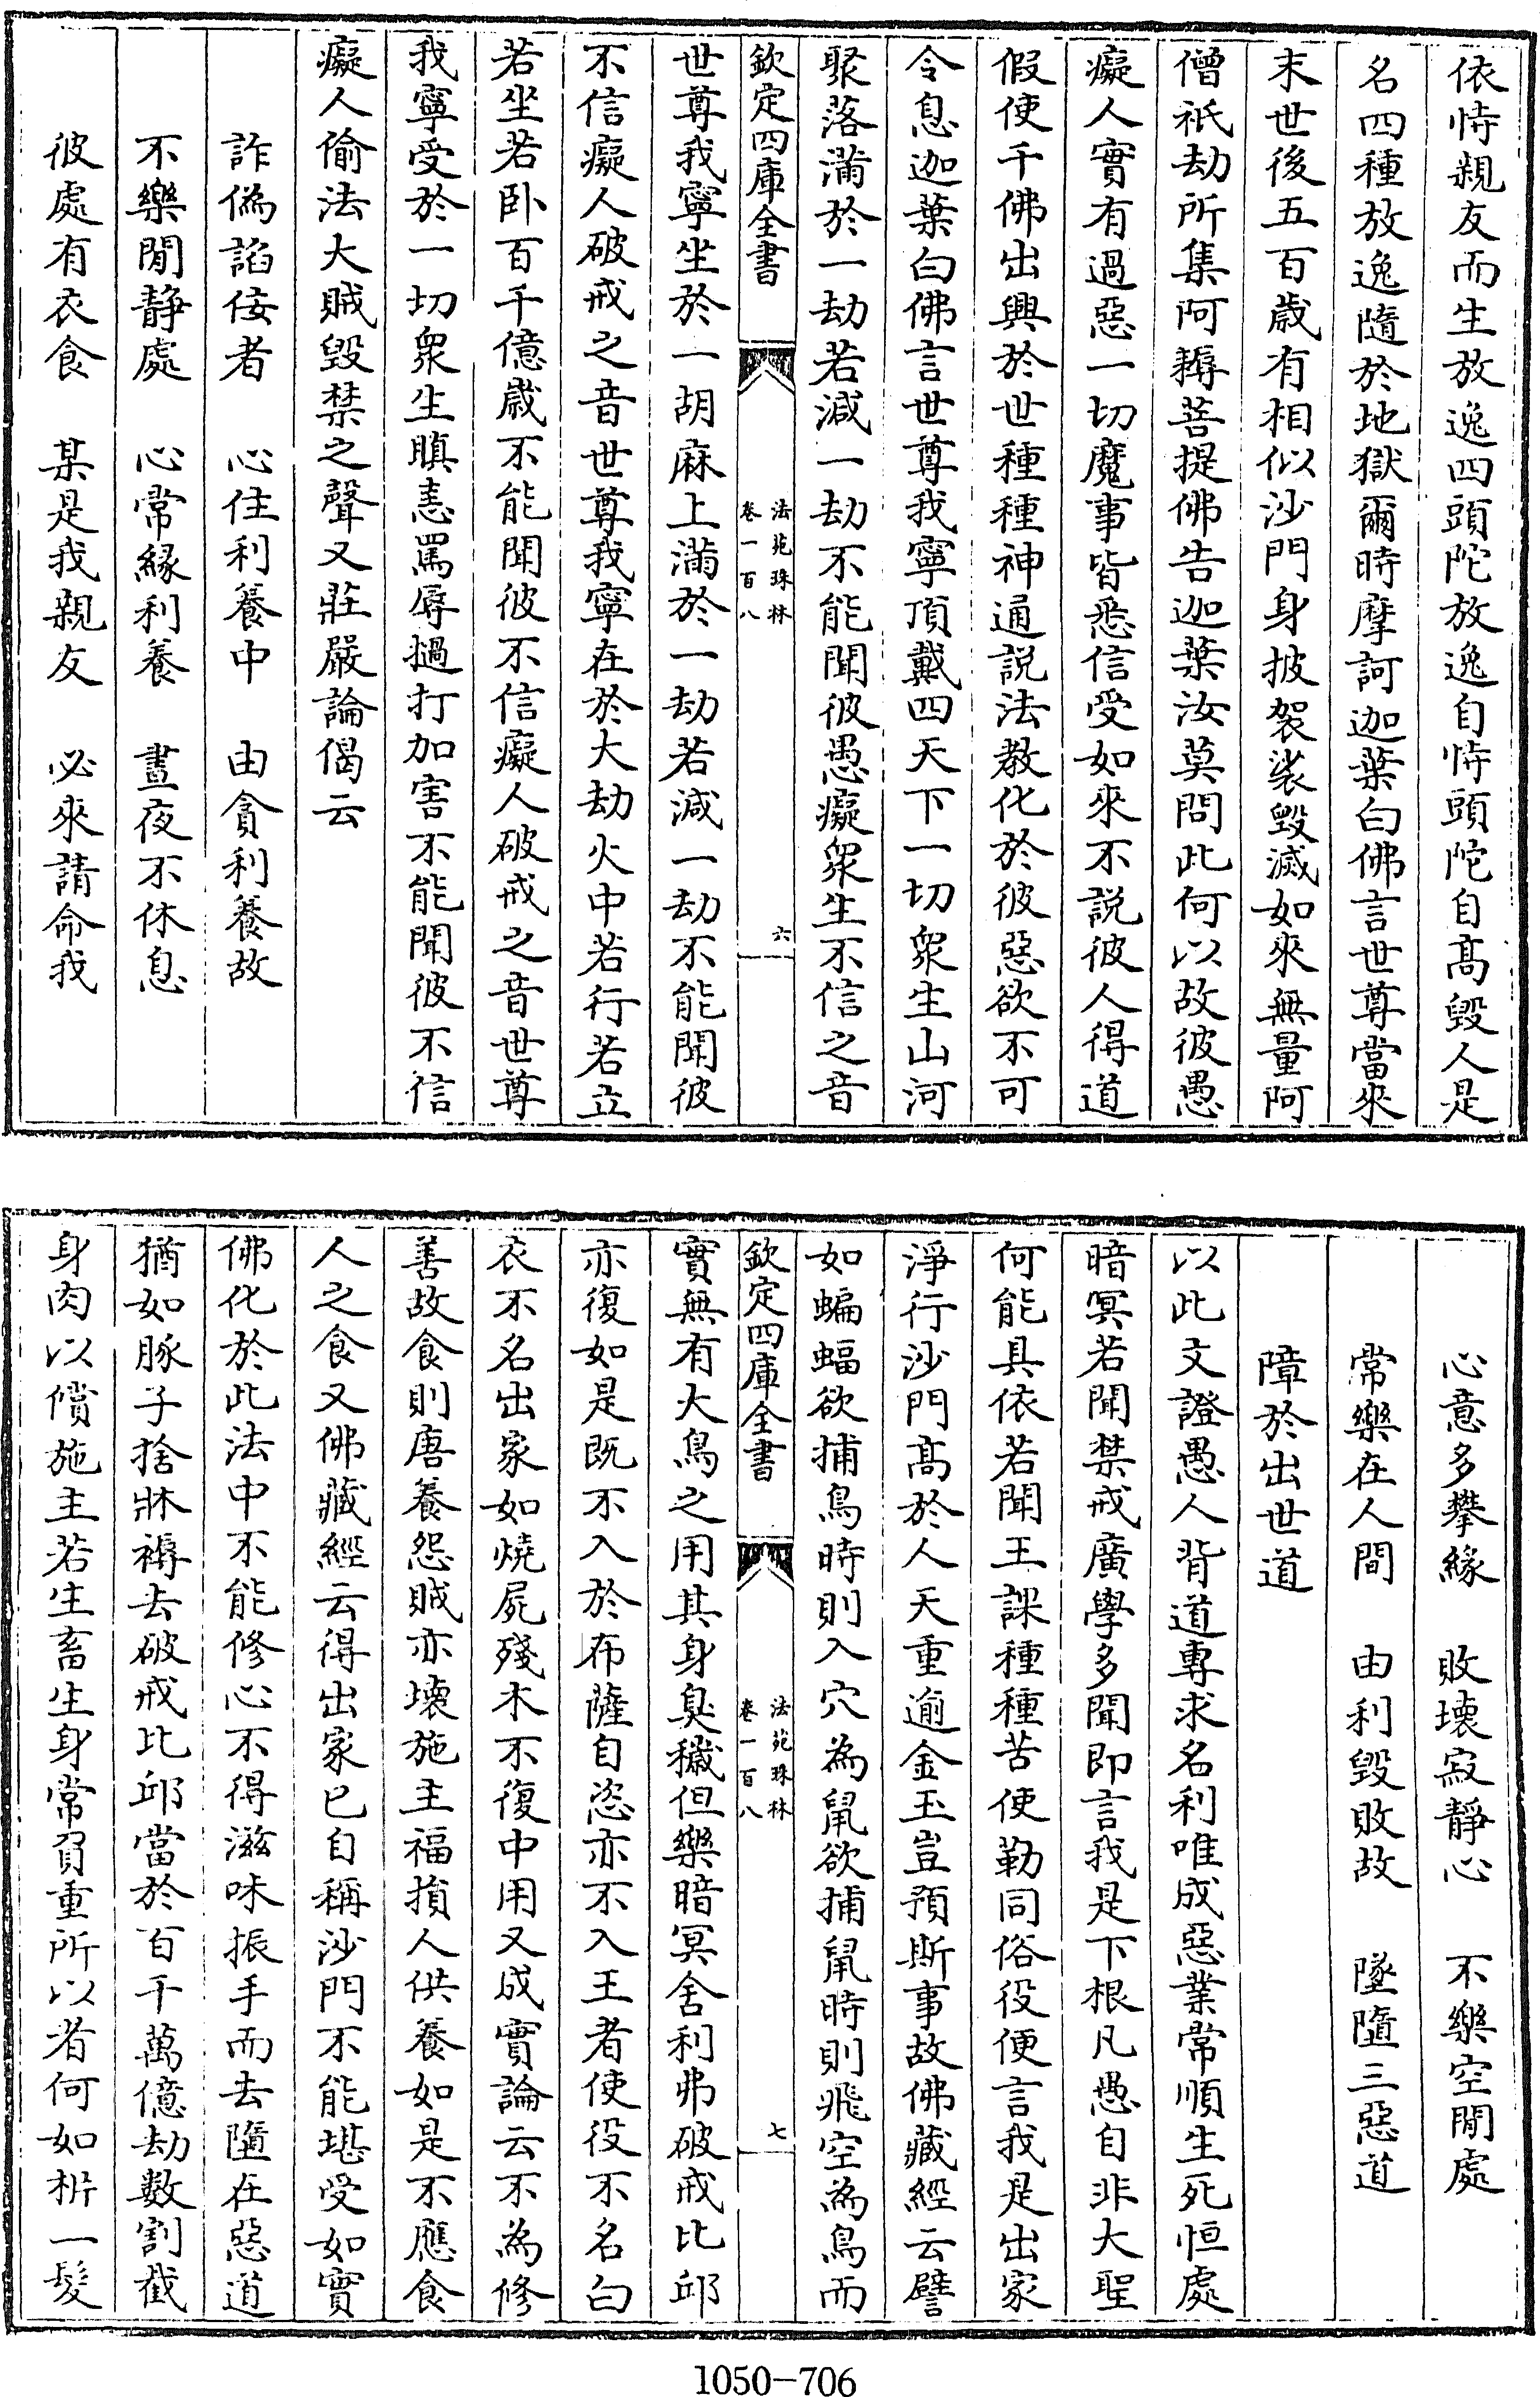 依恃親友而生放逸四頭陀放逸自恃頭陀自髙毀人是
名四種放逸隨於地獄爾時摩訶迦葉白佛言世尊當來
末世後五百歳有相似沙門身披袈裟毀滅如來無量阿
僧祇劫所集阿耨菩提佛告迦葉汝莫問此何以故彼愚
癡人實有過惡一切魔事皆悉信受如來不説彼人得道
假使千佛出興於世種種神通説法教化於彼惡欲不可
令息迦葉白佛言世尊我寧頂戴四天下一切衆生山河
聚落滿於一劫若減一劫不能聞彼愚癡衆生不信之音
欽定四庫全書
法苑珠林
卷一百八
六
世尊我寧坐於一胡麻上滿於一劫若減一劫不能聞彼
不信癡人破戒之音世尊我寧在於大劫火中若行若立
若坐若卧百千億歳不能聞彼不信癡人破戒之音世尊
我寧受於一切衆生瞋恚罵辱撾打加害不能聞彼不信
癡人偷法大賊毀禁之聲又莊嚴論偈云
詐偽諂佞者　心住利養中　由貪利養故
不樂閒靜處　心常縁利養　晝夜不休息
彼處有衣食　某是我親友　必來請命我
心意多攀縁　敗壊寂靜心　不樂空閒處
常樂在人間　由利毀敗故　墜墮三惡道
障於出世道
以此文證愚人背道專求名利唯成惡業常順生死恒處
暗冥若聞禁戒廣學多聞即言我是下根凡愚自非大聖
何能具依若聞王課種種苦使勒同俗役便言我是出家
淨行沙門髙於人天重逾金玉豈預斯事故佛藏經云譬
如蝙蝠欲捕鳥時則入穴為鼠欲捕鼠時則飛空為鳥而
欽定四庫全書
法苑珠林
卷一百八
七
實無有大鳥之用其身臭穢但樂暗冥舍利弗破戒比邱
亦復如是既不入於布薩自恣亦不入王者使役不名白
衣不名出家如燒屍殘木不復中用又成實論云不為修
善故食則唐養怨賊亦壊施主福損人供養如是不應食
人之食又佛藏經云得出家已自稱沙門不能堪受如實
佛化於此法中不能修心不得滋味振手而去墮在惡道
猶如豚子捨牀褥去破戒比邱當於百千萬億劫數割截
身肉以償施主若生畜生身常負重所以者何如析一髮
1050-706